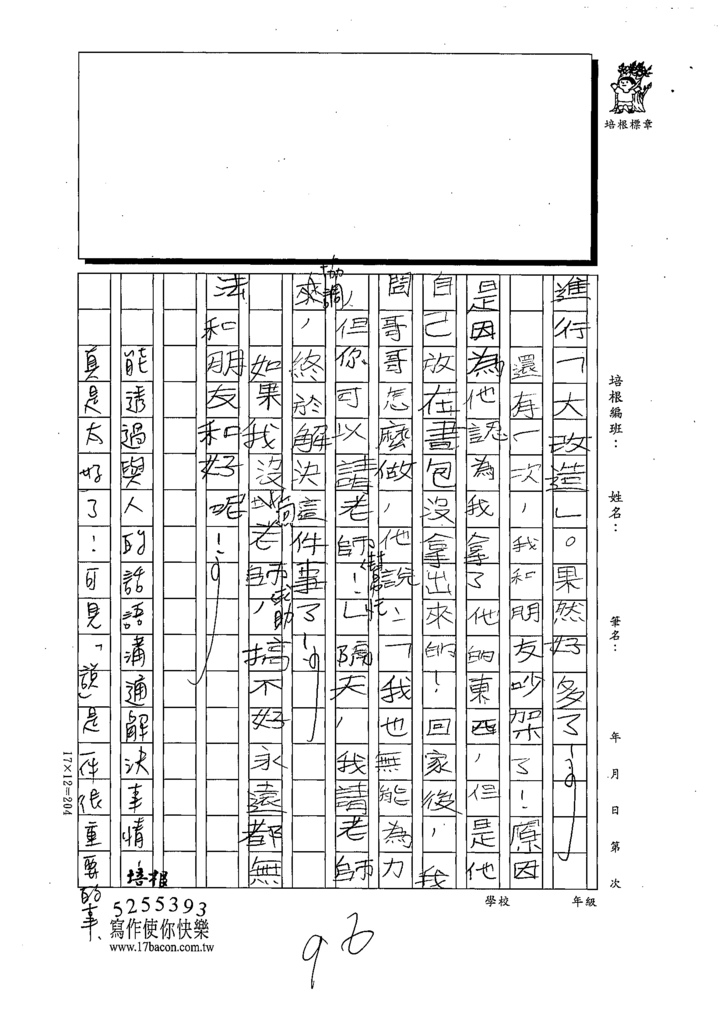 培根標章
培根編班：　姓名：　筆名：　年　月　日　第　次
學校　年級
進行「大改造」。果然好多了！
還有一次，我和朋友吵架了！原因
是因為他認為我拿了他的東西，但是他
自己放在書包沒拿出來的！回家後，我
問哥哥怎麼做，他說：「我也無能為力
，但你可以請老師幫忙！」隔天，我請老師
來協調，終於解決這件事了！
如果我沒向老師求助，搞不好永遠都無
法和朋友和好呢！
能透過與人的話語溝通解決事情，
真是太好了！可見「說」是一件很重要的事、
17×12=204
培根
5255393
寫作使你快樂
www.17bacon.com.tw
96